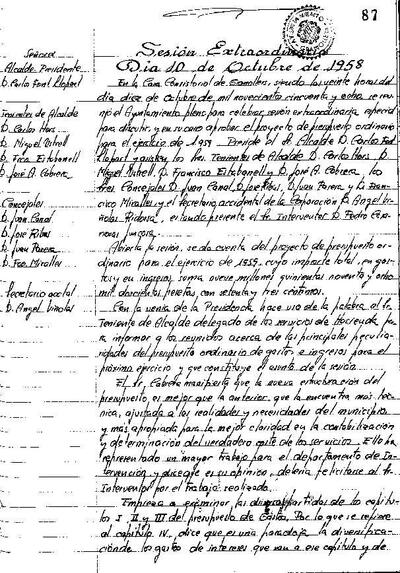 87
Sesión Extraordinaria
Día 10 de Octubre de 1958
Señores
Alcalde Presidente
D. Carlos Font Llopart
Tenientes de Alcalde
D. Carlos Mars
D. Miguel
D. Fco Estabanell
D. José A. Cabrera
Concejales
D. Juan Canal
D. José Ribas
D. Juan Parera
D. Fco. Miralles
Secretario acctal
D. Angel
En la Casa Consistorial de Granollers, siendo las veinte horas del
día diez de Octubre de mil novecientos cincuenta y ocho, se reu-
nió el Ayuntamiento pleno para celebrar sesión extraordinaria especial
para discutir, y en su caso aprobar el proyecto de presupuesto ordinario
para el ejercicio de 1959. Preside el Sr. Alcalde D. Carlos Font
Llopart y asisten los tres Tenientes de Alcalde D. Carlos Mars, D.
Miguel D. Francisco Estabanell y D. José A. Cabrera, los
tres Concejales D. Juan Canal, D. José Ribas, D. Juan Parera y D. Fran-
cisco Miralles y el Secretario accidental de la Corporación D. Angel
estando presente el Sr. Interventor D. Pedro
Abierta la sesión, se da cuenta del proyecto de presupuesto or-
dinario para el ejercicio de 1959, cuyo importe total, en gas-
tos y en ingresos, suma nueve millones quinientas noventa y ocho
mil doscientas pesetas, con setenta y tres céntimos.
Con la venia de la Presidencia, hace uso de la palabra el Sr.
Teniente de Alcalde delegado de los servicios de Hacienda, pa-
ra informar a los reunidos acerca de las principales peculia-
ridades del presupuesto ordinario de gastos e ingresos para el
próximo ejercicio y que constituye el objeto de la sesión.
El Sr. Cabrera manifiesta que la nueva estructuración del
presupuesto, es mejor que la anterior, que la encuentra más téc-
nica, ajustada a las realidades y necesidades del municipio
y más apropiada para la mejor claridad en la contabilización
y determinación del verdadero coste de los servicios. Ello ha
representado un mayor trabajo para el departamento de In-
tervención y dice que es su opinión, debería felicitarse al Sr.
Interventor por el trabajo realizado.
Empieza a examinar las diversas partidas de los capítu-
los I, II y III del presupuesto de Gastos. Por lo que se refiere
al capítulo IV, dice que es una paradoja la diversifica-
ción de los gastos de intereses que van a ese capítulo y de